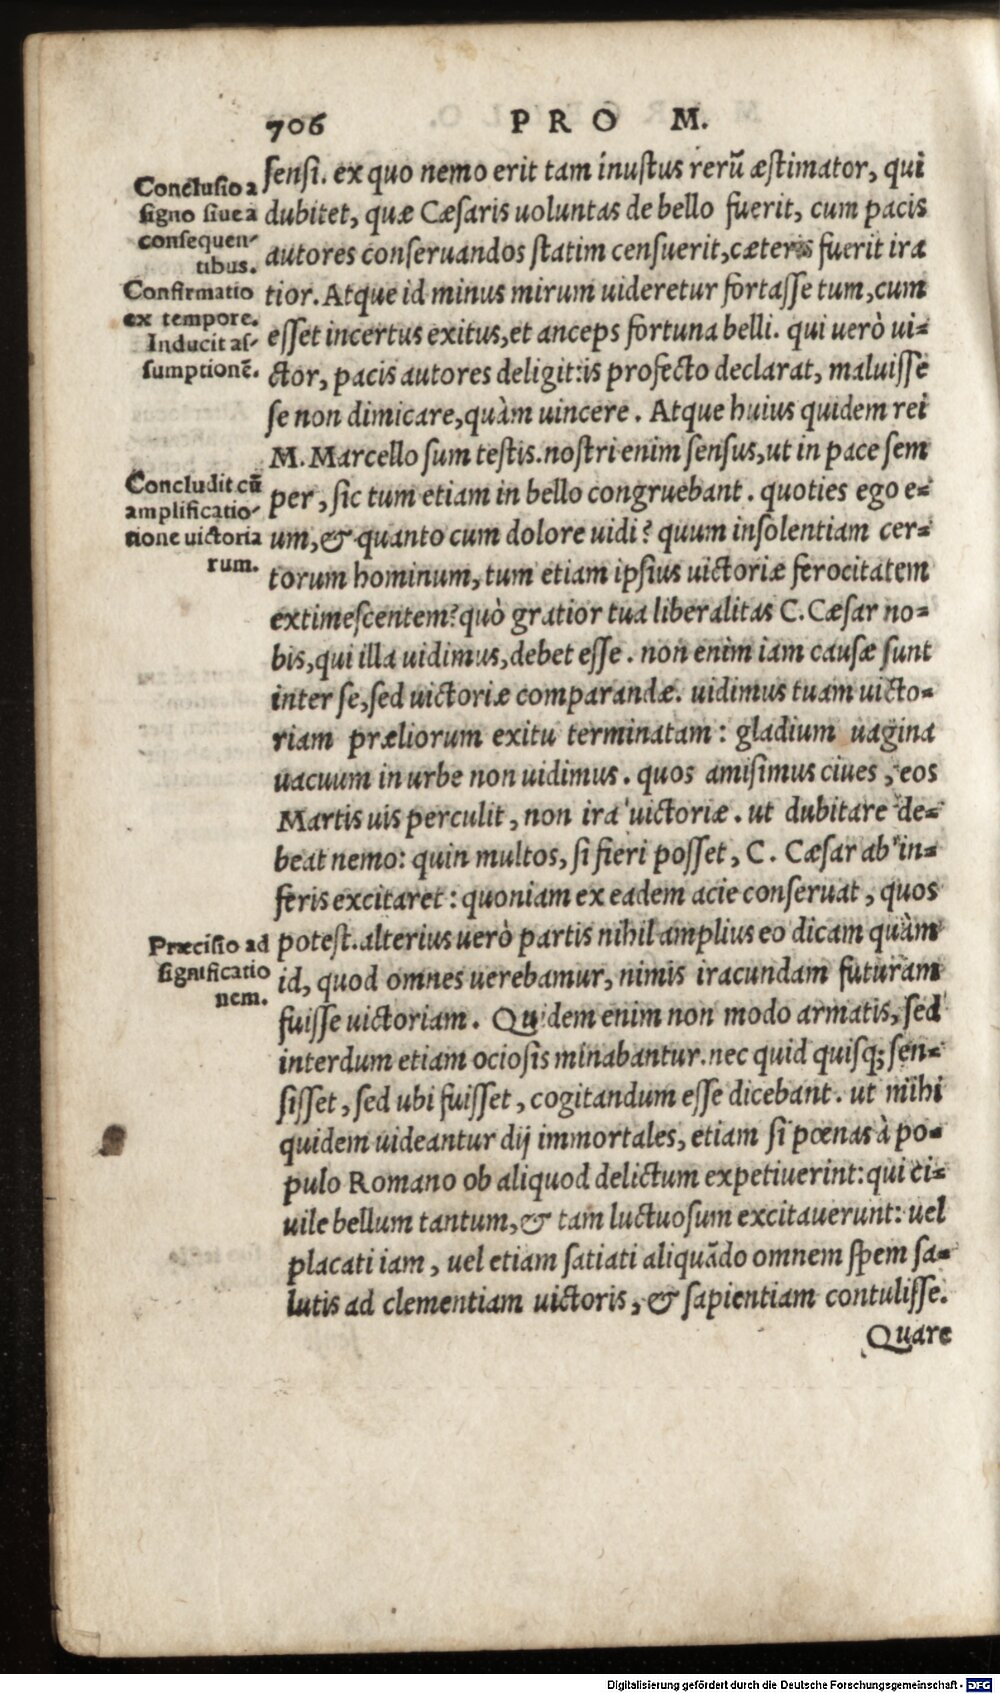 706 PRO M.
Conclusio a
signo siue a
consequen-
tibus.
Confirmatio
ex tempore.
Inducit as-
sumptionē.
Concludit cū
amplificatio-
tione uictoria
rum.
Præcisio ad
significatio
nem.
sensi. ex quo nemo erit tam inustus rerū æstimator, qui
dubitet, quæ Cæsaris uoluntas de bello fuerit, cum pacis
autores conseruandos statim censuerit, cæteris fuerit ira
tior. Atque id minus mirum uideretur fortasse tum, cum
esset incertus exitus, et anceps fortuna belli. qui uerò ui-
ctor, pacis autores deligit: is profecto declarat, maluisse
se non dimicare, quàm uincere. Atque huius quidem rei
M. Marcello sum testis. nostri enim sensus, ut in pace sem
per, sic tum etiam in bello congruebant. quoties ego e-
um, & quanto cum dolore uidi? quum insolentiam cer-
torum hominum, tum etiam ipsius uictoriæ ferocitatem
extimescentem? quò gratior tua liberalitas C. Cæsar no-
bis, qui illa uidimus, debet esse. non enim iam causæ sunt
inter se, sed uictoriæ comparandæ. uidimus tuam uicto-
riam præliorum exitu terminatam: gladium uagina
uacuum in urbe non uidimus. quos amisimus ciues, eos
Martis uis perculit, non ira uictoriæ. ut dubitare de-
beat nemo: quin multos, si fieri posset, C. Cæsar ab in-
feris excitaret: quoniam ex eadem acie conseruat, quos
potest. alterius uerò partis nihil amplius eo dicam quàm
id, quod omnes uerebamur, nimis iracundam futuram
fuisse uictoriam. Quidem enim non modo armatis, sed
interdum etiam ociosis minabantur. nec quid quisq; sen-
sisset, sed ubi fuisset, cogitandum esse dicebant. ut mihi
quidem uideantur dij immortales, etiam si pœnas à po-
pulo Romano ob aliquod delictum expetiuerint: qui ci-
uile bellum tantum, & tam luctuosum excitauerunt: uel
placati iam, uel etiam satiati aliquādo omnem spem sa-
lutis ad clementiam uictoris, & sapientiam contulisse.
Quare
Digitalisierung gefördert durch die Deutsche Forschungsgemeinschaft - DFG